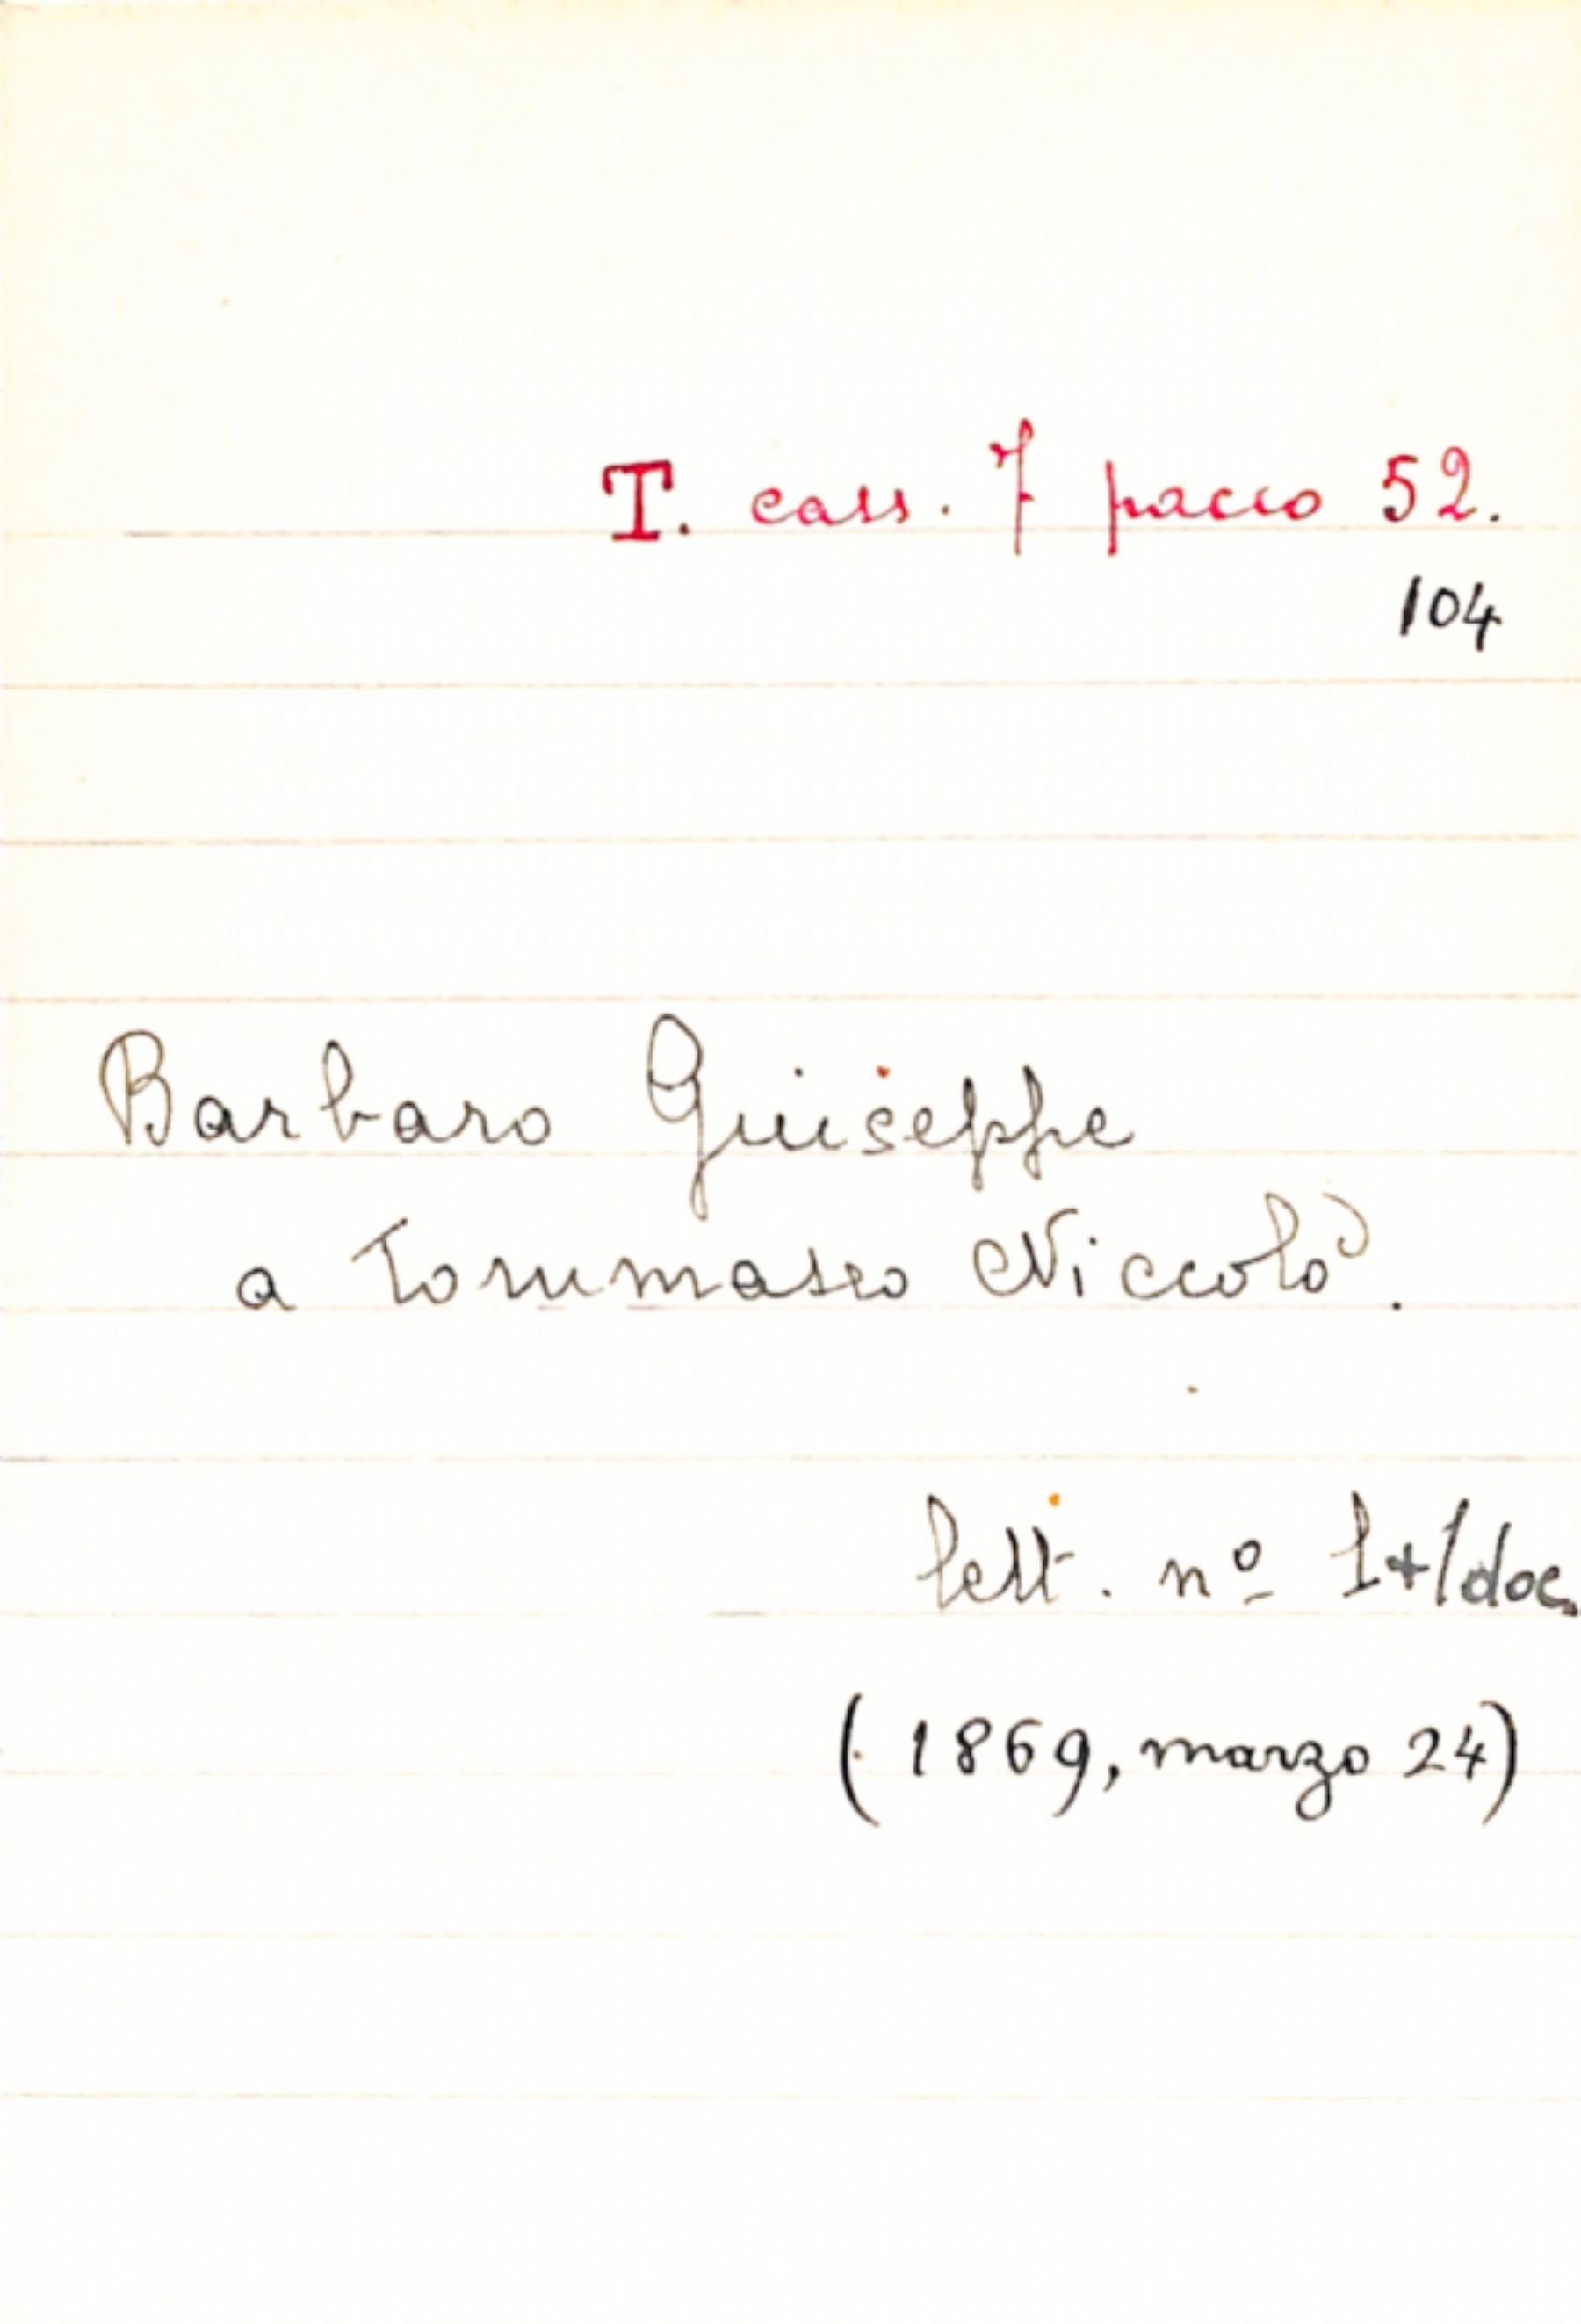 T. cass. 7 pacco 52.
104
Barbaro Giuseppe
a Tommaseo Niccolò.
lett. nº 1+1doc.
(1869, marzo 24)